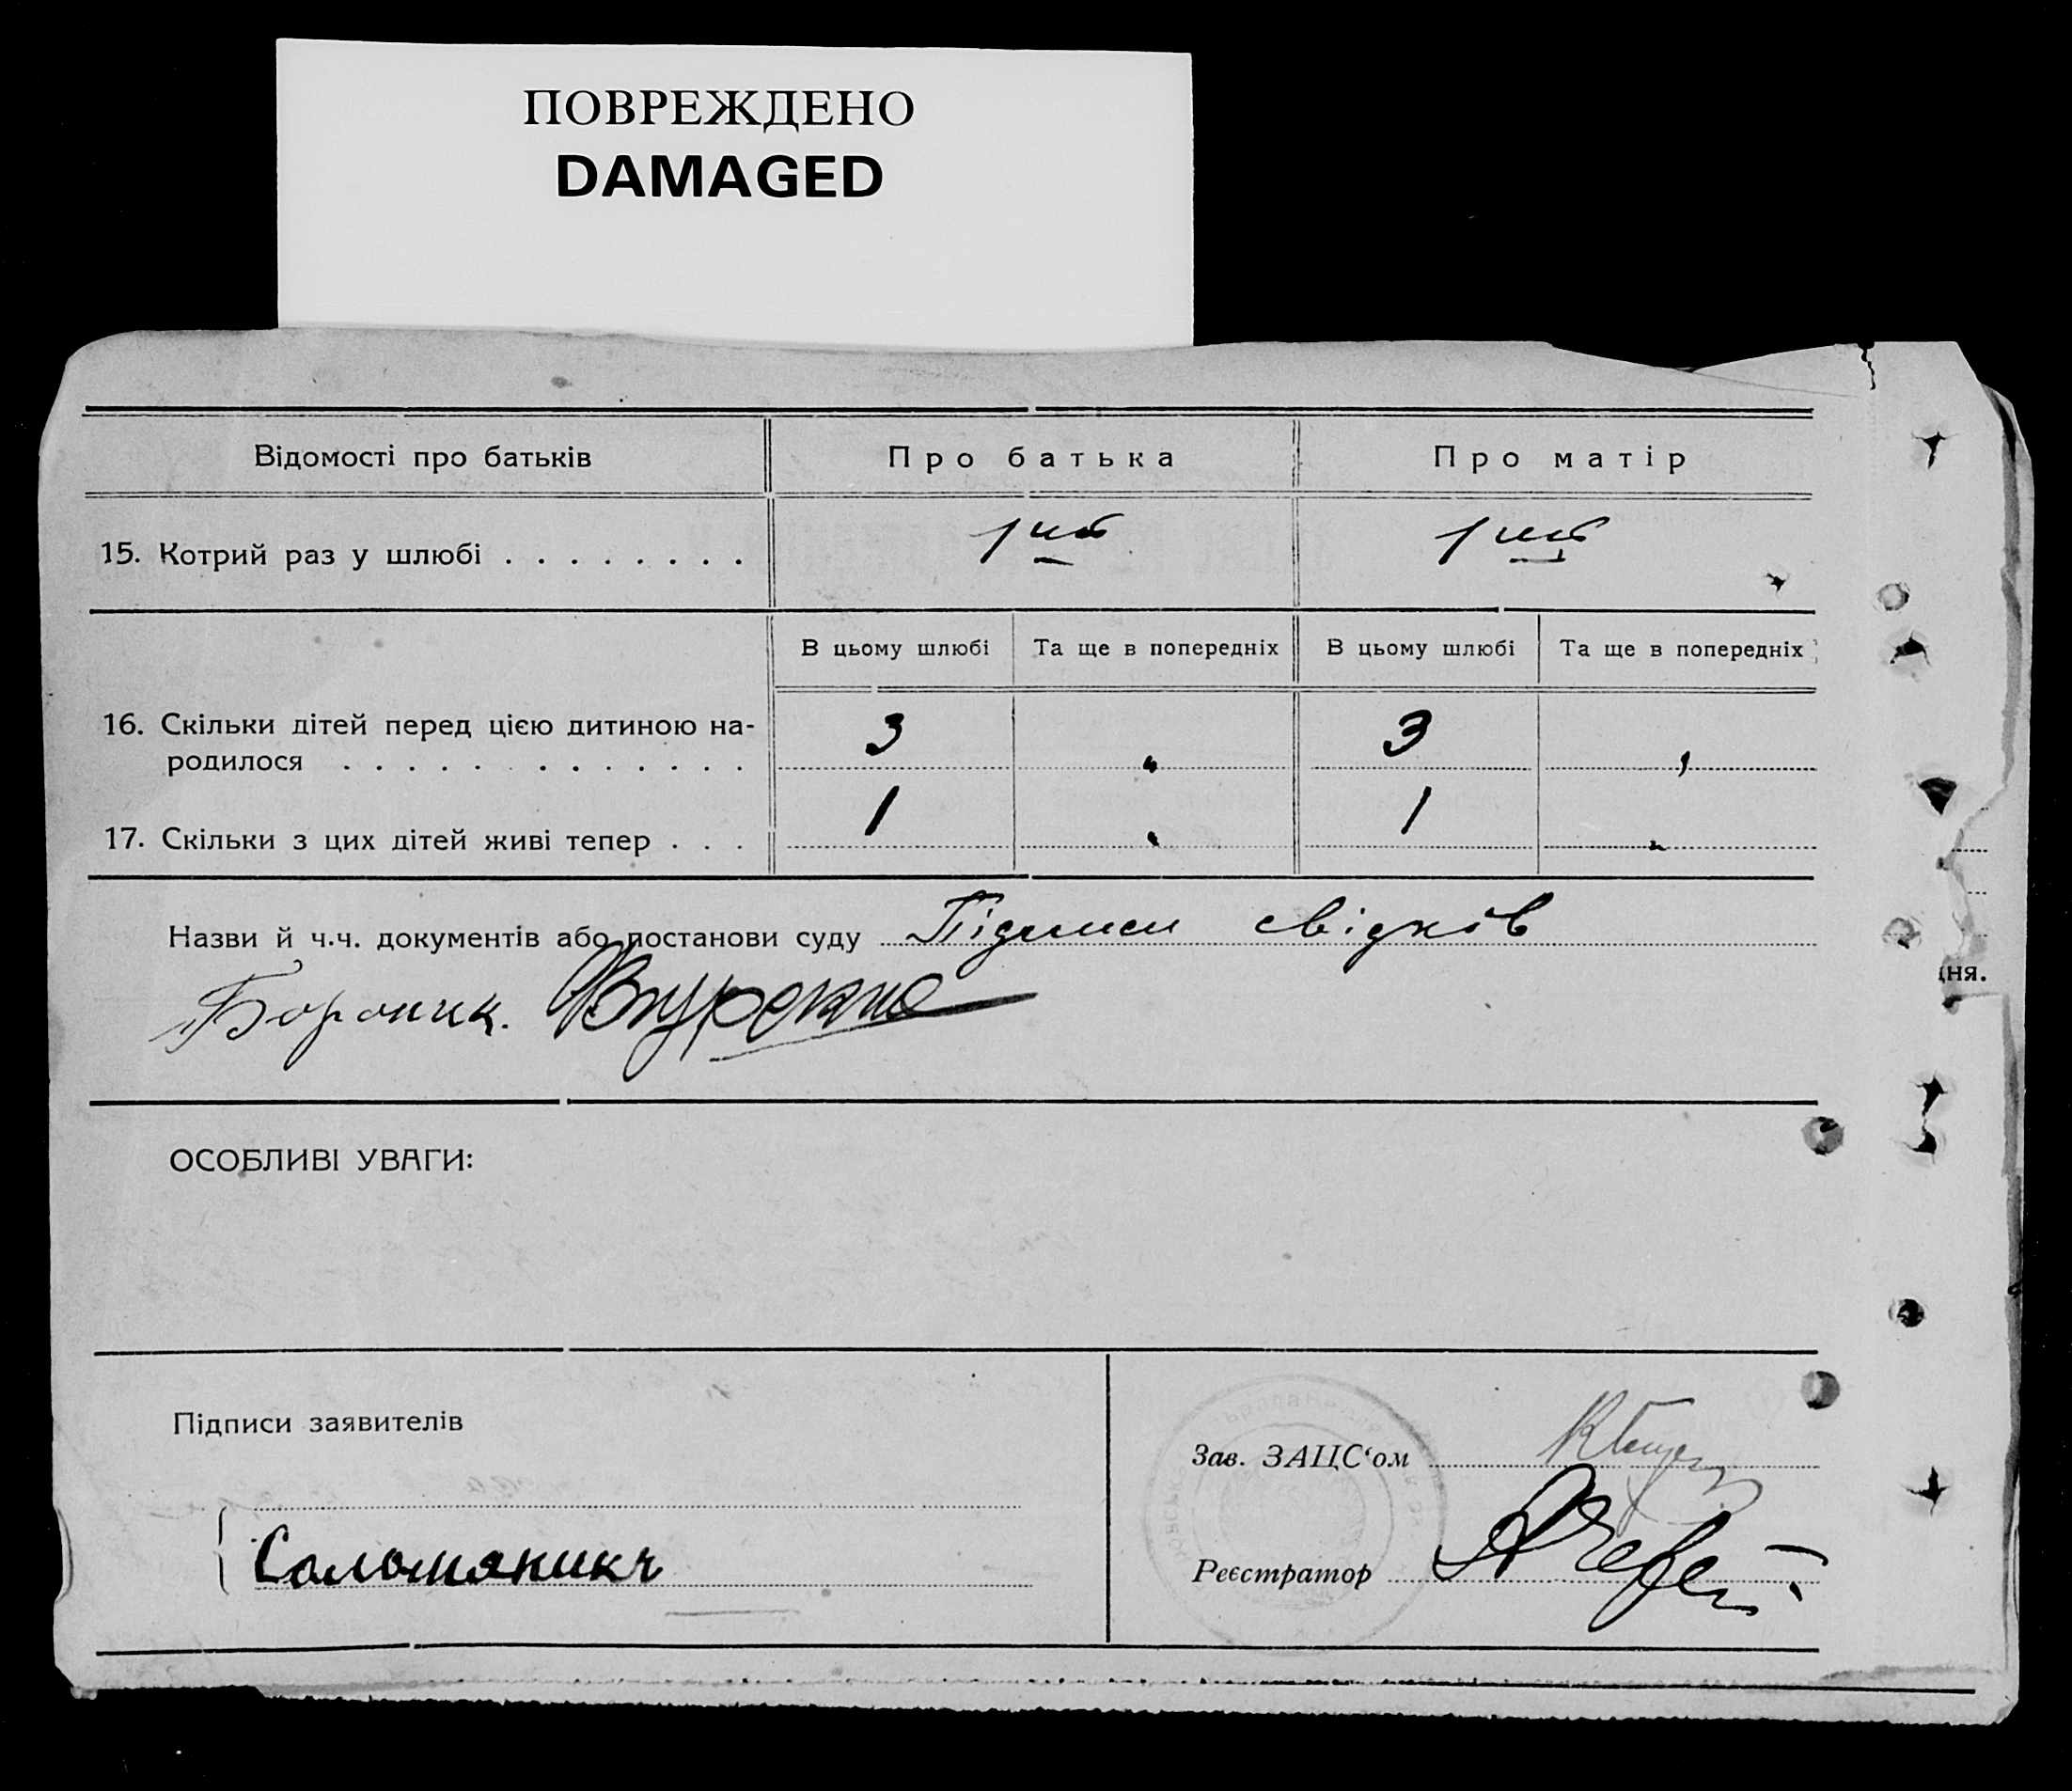 ПОВРЕЖДЕНО
DAMAGED
Відомості про батьків Про батька Про матір
15. Котрий раз у шлюбі . . . . . . . . 1 ий 1 ий
В цьому шлюбі Та ще в попередніх В цьому шлюбі Та ще в попередніх
16. Скільки дітей перед цією дитиною на- 3 „ 3 „
родилося . . . . . . . . . . . . .
17. Скільки з цих дітей живі тепер . . . 1 „ 1 „
Назви й ч.ч. документів або постанови суду Підписи свідків
дня.
ОСОБЛИВІ УВАГИ:
Підписи заявителів
Зав. ЗАЦС‘ом
Реєстратор